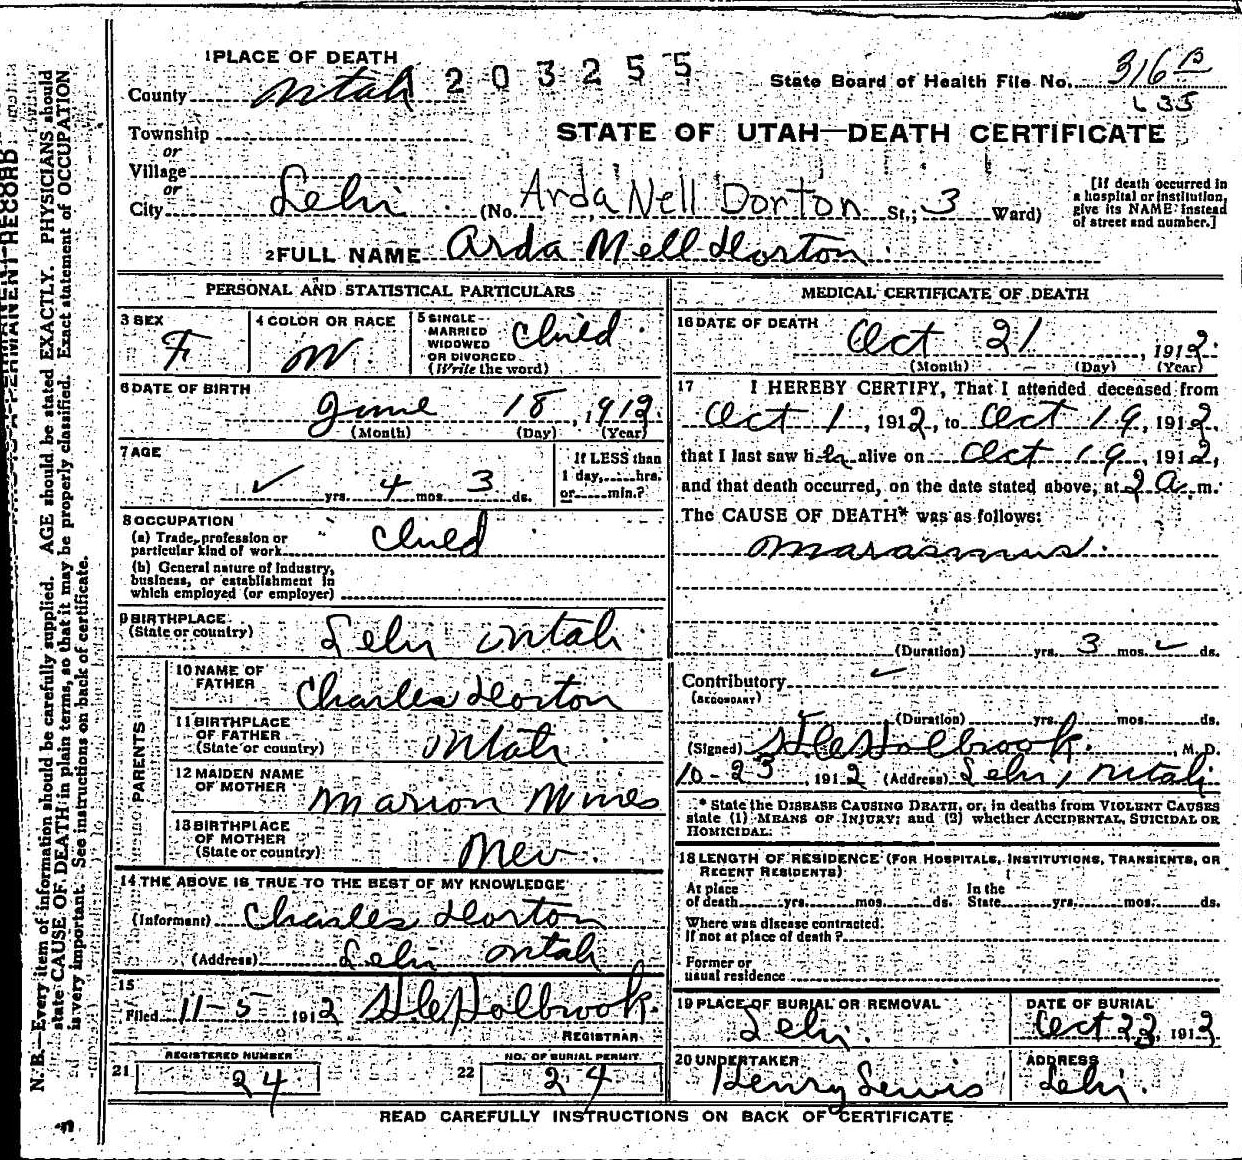 1 PLACE OF DEATH
203255
County Utah
State Board of Health File No. 316 B
L 35
Township
or
Village
or
City Lehi
STATE OF UTAH—DEATH CERTIFICATE
(No. Arda Nell Dorton St.; 3 Ward)
[If death occurred in
a hospital or institution,
give its NAME instead
of street and number.]
2 FULL NAME Arda Nell Dorton
PERSONAL AND STATISTICAL PARTICULARS
3 SEX
F
4 COLOR OR RACE
W.
5 SINGLE
MARRIED
WIDOWED
OR DIVORCED
(Write the word)
Child
6 DATE OF BIRTH
June 18, 1912
(Month) (Day) (Year)
7 AGE
✓ yrs. 4 mos. 3 ds.
If LESS than
1 day, hrs.
or min.?
8 OCCUPATION
(a) Trade, profession or
particular kind of work Child
(b) General nature of industry,
business, or establishment in
which employed (or employer)
9 BIRTHPLACE
(State or country)
Lehi Utah
PARENTS
10 NAME OF
FATHER
Charles Dorton
11 BIRTHPLACE
OF FATHER
(State or country)
Utah
12 MAIDEN NAME
OF MOTHER
Marion Mines
13 BIRTHPLACE
OF MOTHER
(State or country)
Nev.
14 THE ABOVE IS TRUE TO THE BEST OF MY KNOWLEDGE
(Informant) Charles Dorton
(Address) Lehi Utah
15
Filed 11-5 1912 Holbrook.
REGISTRAR
REGISTERED NUMBER
21 24
NO. OF BURIAL PERMIT
22 24
MEDICAL CERTIFICATE OF DEATH
16 DATE OF DEATH
Oct 21, 1912
(Month) (Day) (Year)
17 I HEREBY CERTIFY, That I attended deceased from
Oct 1, 1912, to Oct 19, 1912,
that I last saw her alive on Oct 19, 1912,
and that death occurred, on the date stated above, at 2 A. m.
The CAUSE OF DEATH* was as follows:
Marasmus.
(Duration) yrs. 3 mos. ✓ ds.
Contributory ✓
(SECONDARY)
(Duration) yrs. mos. ds.
(Signed) Holbrook. , M.D.
10-23 1912 (Address) Lehi, Utah
* State the DISEASE CAUSING DEATH, or, in deaths from VIOLENT CAUSES
state (1) MEANS OF INJURY; and (2) whether ACCIDENTAL, SUICIDAL OR
HOMICIDAL.
18 LENGTH OF RESIDENCE (FOR HOSPITALS, INSTITUTIONS, TRANSIENTS, OR
RECENT RESIDENTS)
At place
of death yrs. mos. ds.
In the
State yrs. mos. ds.
Where was disease contracted,
If not at place of death?
Former or
usual residence
19 PLACE OF BURIAL OR REMOVAL
Lehi.
DATE OF BURIAL
Oct 23, 1912
20 UNDERTAKER
Henry Lewis
ADDRESS
Lehi.
READ CAREFULLY INSTRUCTIONS ON BACK OF CERTIFICATE
PERMANENT RECORD
N. B.—Every item of information should be carefully supplied. AGE should be stated EXACTLY. PHYSICIANS should
state CAUSE OF DEATH in plain terms, so that it may be properly classified. Exact statement of OCCUPATION
is very important. See instructions on back of certificate.